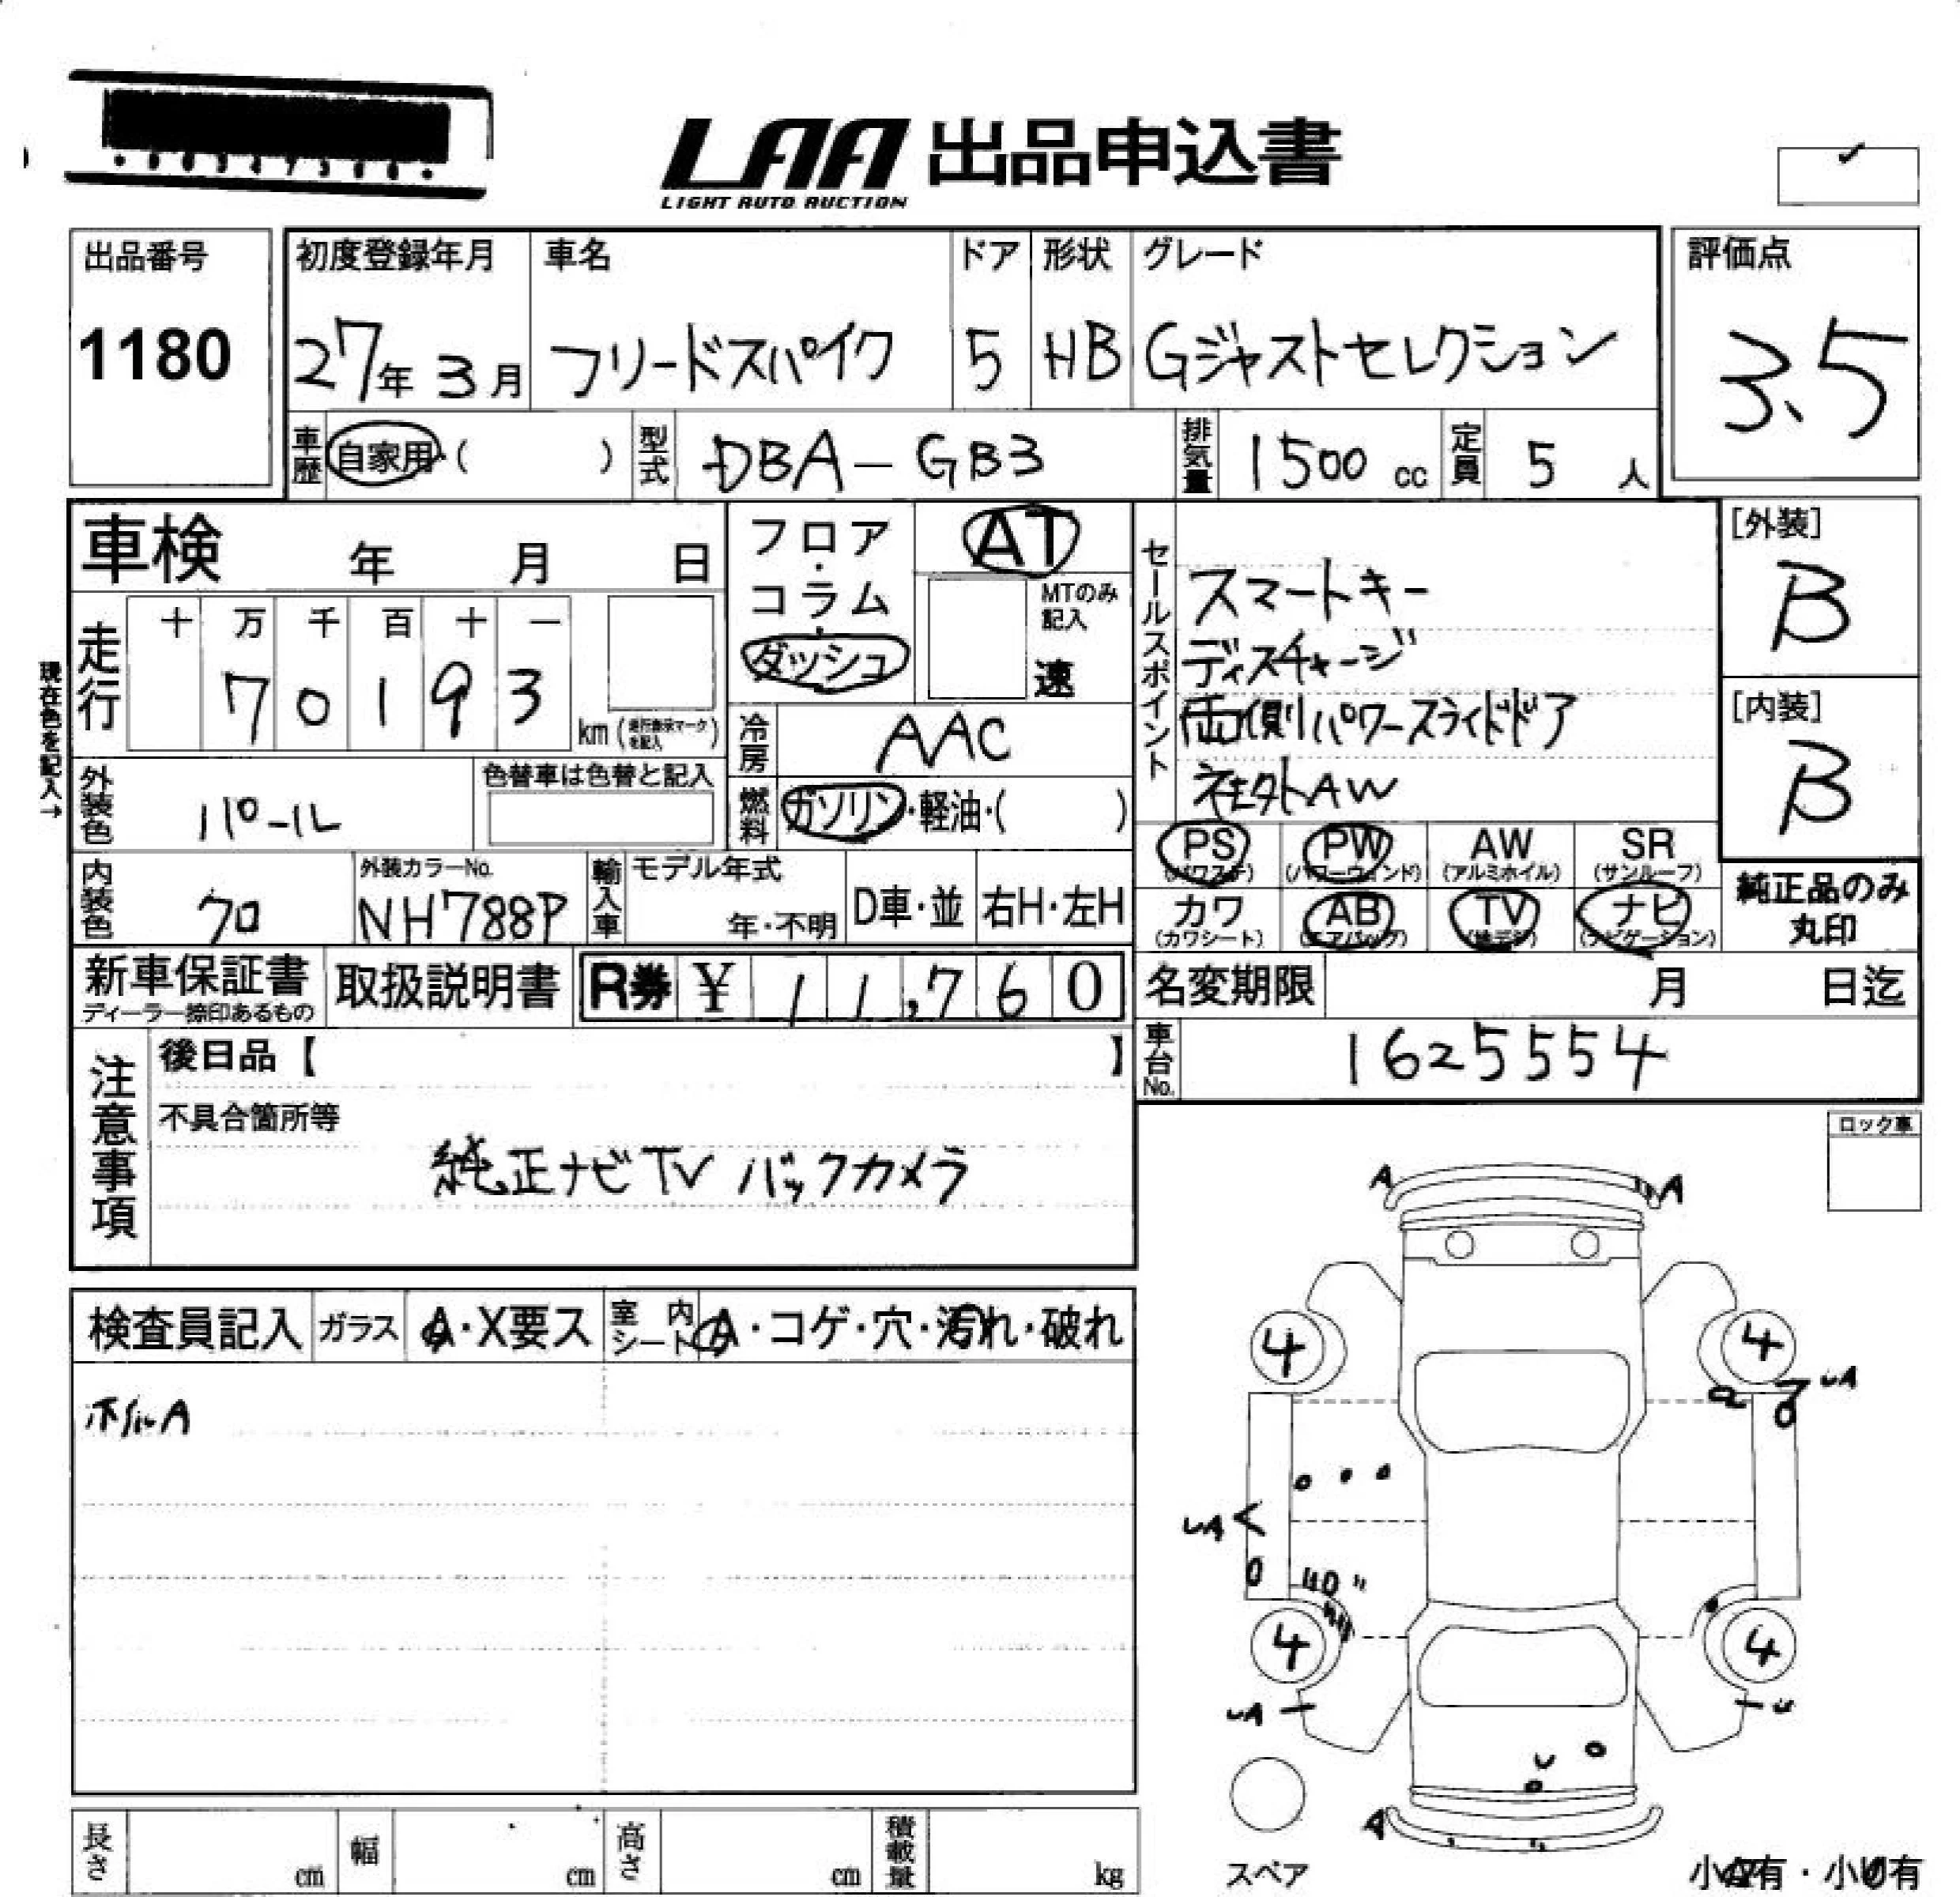 LAA 出品申込書
LIGHT AUTO AUCTION
出品番号
1180
初度登録年月 車名 ドア 形状 グレード
27年3月 フリードスパイク 5 HB Gジャストセレクション
評価点
3.5
車歴 自家用・( ) 型式 DBA-GB3 排気量 1500cc 定員 5人
車検 年 月 日
走行 十 万 千 百 十 一
70193 km
現在色を記入→
外装色 パール
色替車は色替と記入
内装色 クロ
外装カラーNo. NH788P
輸入車 モデル年式 年・不明 D車・並 右H・左H
フロア・コラム・ダッシュ
AT
MTのみ記入
速
冷房 AAC
燃料 ガソリン・軽油・( )
セールスポイント
スマートキー
ディスチャージ
両側パワースライドドア
社外AW
[外装]
B
[内装]
B
PS PW AW SR
(パワステ) (パワーウィンド) (アルミホイル) (サンルーフ)
カワ AB TV ナビ
(カワシート) (エアバッグ) (地デジ) (ナビゲーション)
純正品のみ
丸印
新車保証書 取扱説明書 R券 ¥11,760
ディーラー捺印あるもの
名変期限 月 日迄
車台No. 1625554
注意事項
後日品【 】
不具合箇所等
純正ナビTV バックカメラ
ロック車
検査員記入 ガラス A・X要ス 室内シート A・コゲ・穴・汚れ・破れ
A A
4 4
UA
UA
4 4
UA U
U
A
スペア
長さ cm 幅 cm 高さ cm 積載量 kg